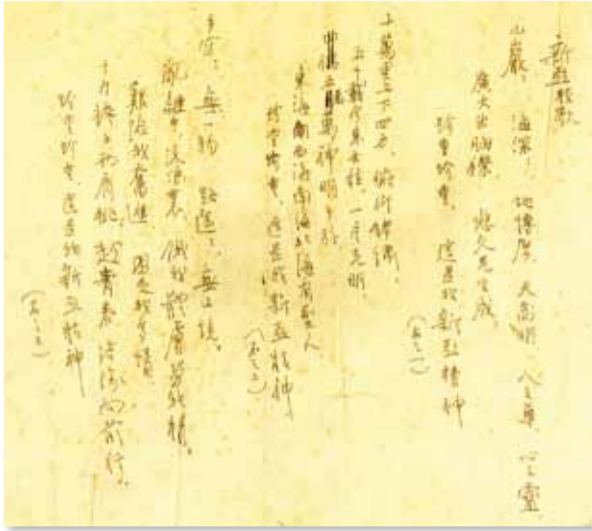 新亞校歌
山巖〻 海深〻 地博厚 天高明 人之尊 心之靈
廣大出胸襟 悠久見生成
珍重珍重 這是我新亞精神
十萬里上下四方,俯仰錦繡,
五千載今來古往,一片光明,
萬神明子孫
東海西海南海北海有聖人
珍重珍重,這是我新亞精神
手空〻,無一物,路遙〻,無止境。
亂離中流浪裏 餓我體膚勞我精。
艱險我奮進 困乏我多情
千斤擔子兩肩挑,趁青春 結隊向前行。
珍重珍重,這是我新亞精神